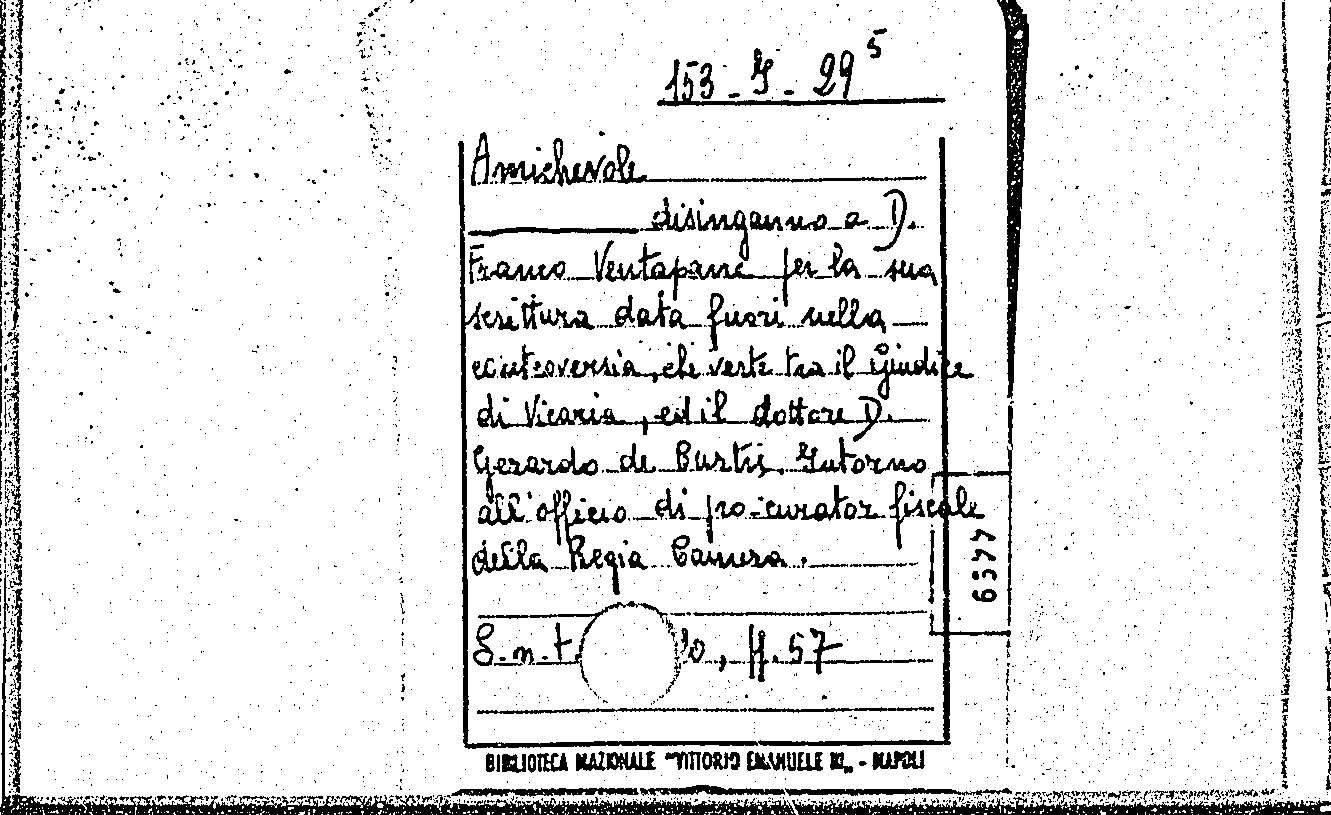 153 - I - 29 5
Amichevole
disinganno a D.
Franco Ventapane per la sua
scrittura data fuori nella
controversia, che verte tra il Giudice
di Vicaria, ed il dottore D.
Gerardo de Curtis. Intorno
all'officio di pro-curator fiscale
della Regia Camera.
S.n.t. ff. 57
6577
BIBLIOTECA NAZIONALE "VITTORIO EMANUELE III" - NAPOLI